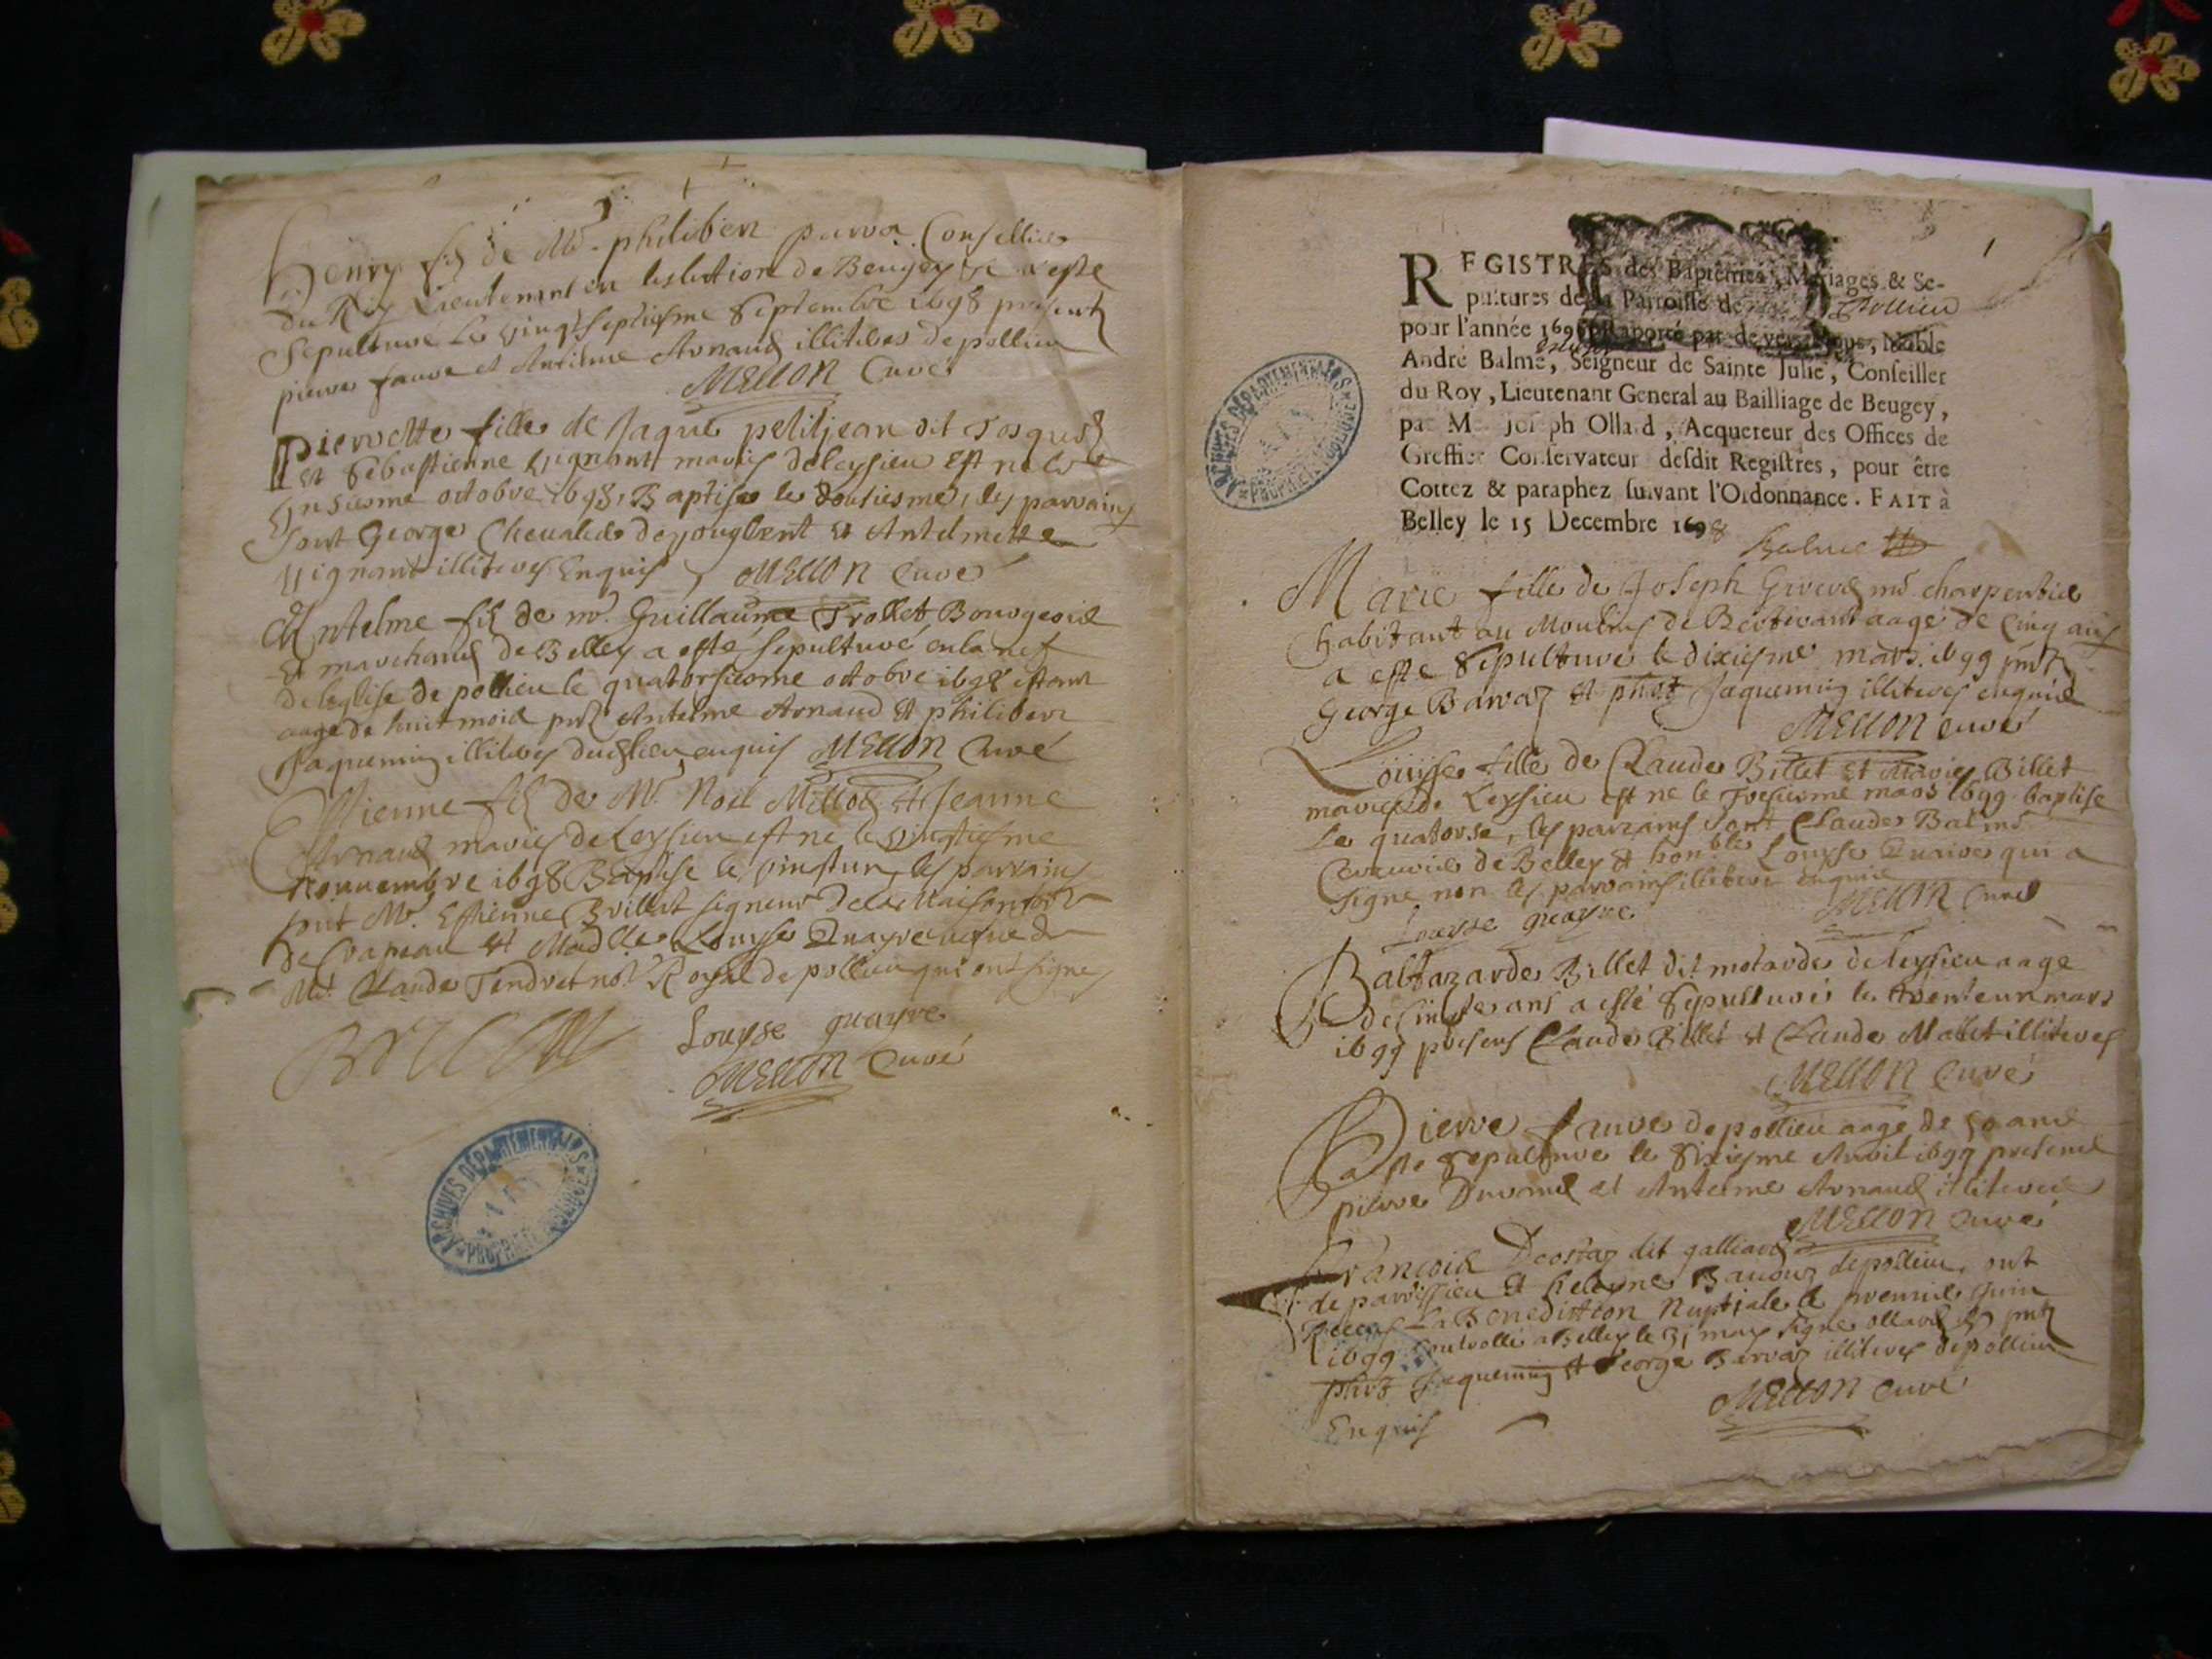 Henry fils de Mr. philibert parra Conseillier
du Roy Lieutenant en leslection de Beugey a este
Sepulturé Le vingt septiesme Septembre 1698 presents
pierre faure et Antelme Arnaud illiteres de pollieu
MELLON Curé
Pierrette fille de Jaque petitjean dit
et Sebastienne Vignant mariés de leysieu est née le
onsiesme octobre 1698, Baptisee le dousiesme, les parrains
sont George Chevalier de et Antelmette
Vignant illiteres Enquis MELLON Curé
Antelme fils de mr. Guillaume Trollet Bourgeois
et marchand de Belley a esté sepulturé en la nef
de leglise de pollieu le quatorsiesme octobre 1698 estant
aage de huit mois pnts Antelme Arnaud et philibert
Jaquemin illiteres dudt lieu enquis MELLON Curé
Estienne fils de Mr. Noel Millot et Jeanne
Arnaud mariés de Leysieu est ne le vingtiesme
Nouvembre 1698 Baptise le vingtun, les parrains
sont Mr. Estienne Brillat signeur de la Maison forte
de Crapeau et Madlle Louyse Quayre du
Mr. Claude Tendret nore Royal de pollieu qui ont signes
Louyse quayre
MELLON Curé
ARCHIVES DÉPARTEMENTALES
* PROPRIÉTÉ PUBLIQUE *
REGISTRES des Baptêmes, Mariages & Se-
pultures de la Parroisse de Pollieu
pour l'année 1699 Raporté par devers Nous, Noble
André Balme, Seigneur de Sainte Julie, Conseiller
du Roy, Lieutenant General au Bailliage de Beugey,
par Me Joseph Ollard, Acquereur des Offices de
Greffier Conservateur desdit Registres, pour être
Cottez & paraphez suivant l'Ordonnance. FAIT à
Belley le 15 Decembre 1698
Balme
ARCHIVES DÉPARTEMENTALES
* PROPRIÉTÉ PUBLIQUE *
Marie fille de Joseph Girerd me charpentier
habitant au Moulins de aagé de Cinq ans
a esté Sepulturée le dixiesme mars 1699 pnts
George Barraz et phbt Jaquemin illiteres enquis
MELLON Curé
Louise fille de Claude Billet et Marie Billet
mariés de Leysieu est ne le Tresiesme mars 1699 baptise
le quatorse, les parrains sont Claude Balme
de Belley et honble Louyse Quaire qui a
signe non les parrains illiteres enquis
Louyse quayre MELLON Curé
Baltazarde Billet dit motarde de leysieu aage
de ans a esté Sepulturée le trenteun mars
1699 presens Claude Billet et Claude Malet illiteres
MELLON Curé
Pierre faure de pollieu aage de 50 ans
a este sepulture le sixiesme Avril 1699 presens
pierre Durand et Antelme Arnaud illiteres
MELLON Curé
François Decostaz dit galliard
de parvissieu et heleyne Baudoz de pollieu, ont
Receu La Benediction Nuptiale le premier Juin
1699 Controllé a Belley le 31 may signe ollard pnts
phbt Jaquemin et George Barraz illiteres de pollieu
Enquis MELLON Curé